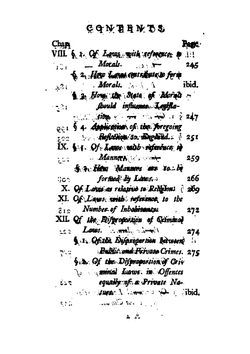 CONTENTS
Chap. Page.
VIII. § 1. Of Laws with reference to
Morals. 245
§ 2. How Laws contribute to form
Morals. ibid.
§ 3. How the State of Morals
should influence Legisla-
tion. 247
§ 4. Application of the foregoing
Reflection to England. 251
IX. § 1. Of Laws with reference to
Manners. 259
§ 2. How Manners are to be
formed by Laws. 266
X. Of Laws as relative to Religion. 269
XI. Of Laws with reference to the
Number of Inhabitants. 272
XII. Of the Disproportion of Criminal
Laws. 274
§ 1. Of the Disproportion between
Public and Private Crimes. 275
§ 2. Of the Disproportion of Cri-
minal Laws. in Offences
equally of a Private Na-
ture. ibid.